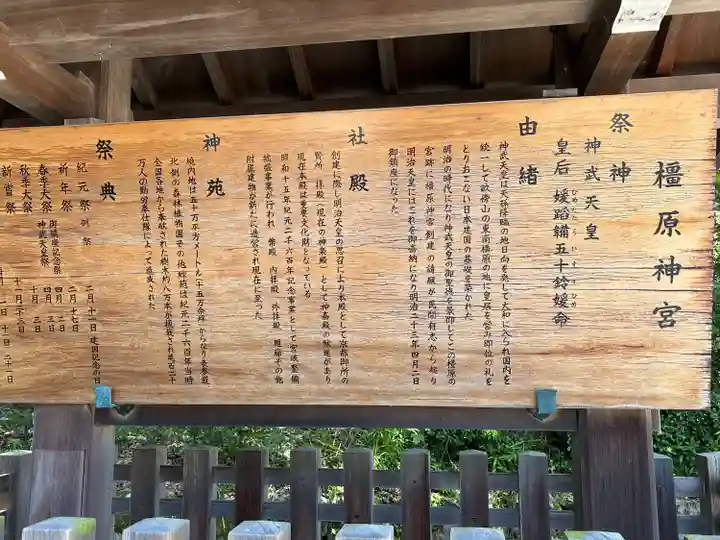 橿原神宮
祭神
神武天皇
皇后 媛蹈鞴五十鈴媛命
ひめたたらいすずひめ
由緒
神武天皇は天孫降臨の地日向を発して大和に入られ国内を
統一して畝傍山の東南橿原の地に皇居を営み即位の礼を
とり行い日本建国の基礎を築かれた
明治の時代になり神武天皇の御聖徳を景仰してこの橿原の
宮跡に橿原神宮創建の請願が民間有志から起り
明治天皇にはこれを御嘉納になり明治二十三年四月二日
御鎮座になった
社殿
創建に際し明治天皇の思召により本殿として京都御所の
賢所 拝殿(現在の神楽殿)として神嘉殿の
現在本殿は重要文化財となっている
昭和十五年紀元二千六百年記念事業として宮域整備
拡張事業が行われ 幣殿 内拝殿 外拝殿 廻廊その他
附属建物が新たに造営され現在に至った
神苑
境内地は五十万平方メートル(十五万余坪)から
北側の森林植物園その他神苑は紀元二千六百年当時
全国各地から奉献された樹木約八万本が植栽され
万人の勤労奉仕隊によって造成された
祭典
紀元祭 例祭 二月十一日 建国記念の日
祈年祭 二月十七日
御鎮座記念祭 四月二日
春季大祭 神武天皇祭 四月三日
秋季大祭 十月三日
新嘗祭 十一月二十三日